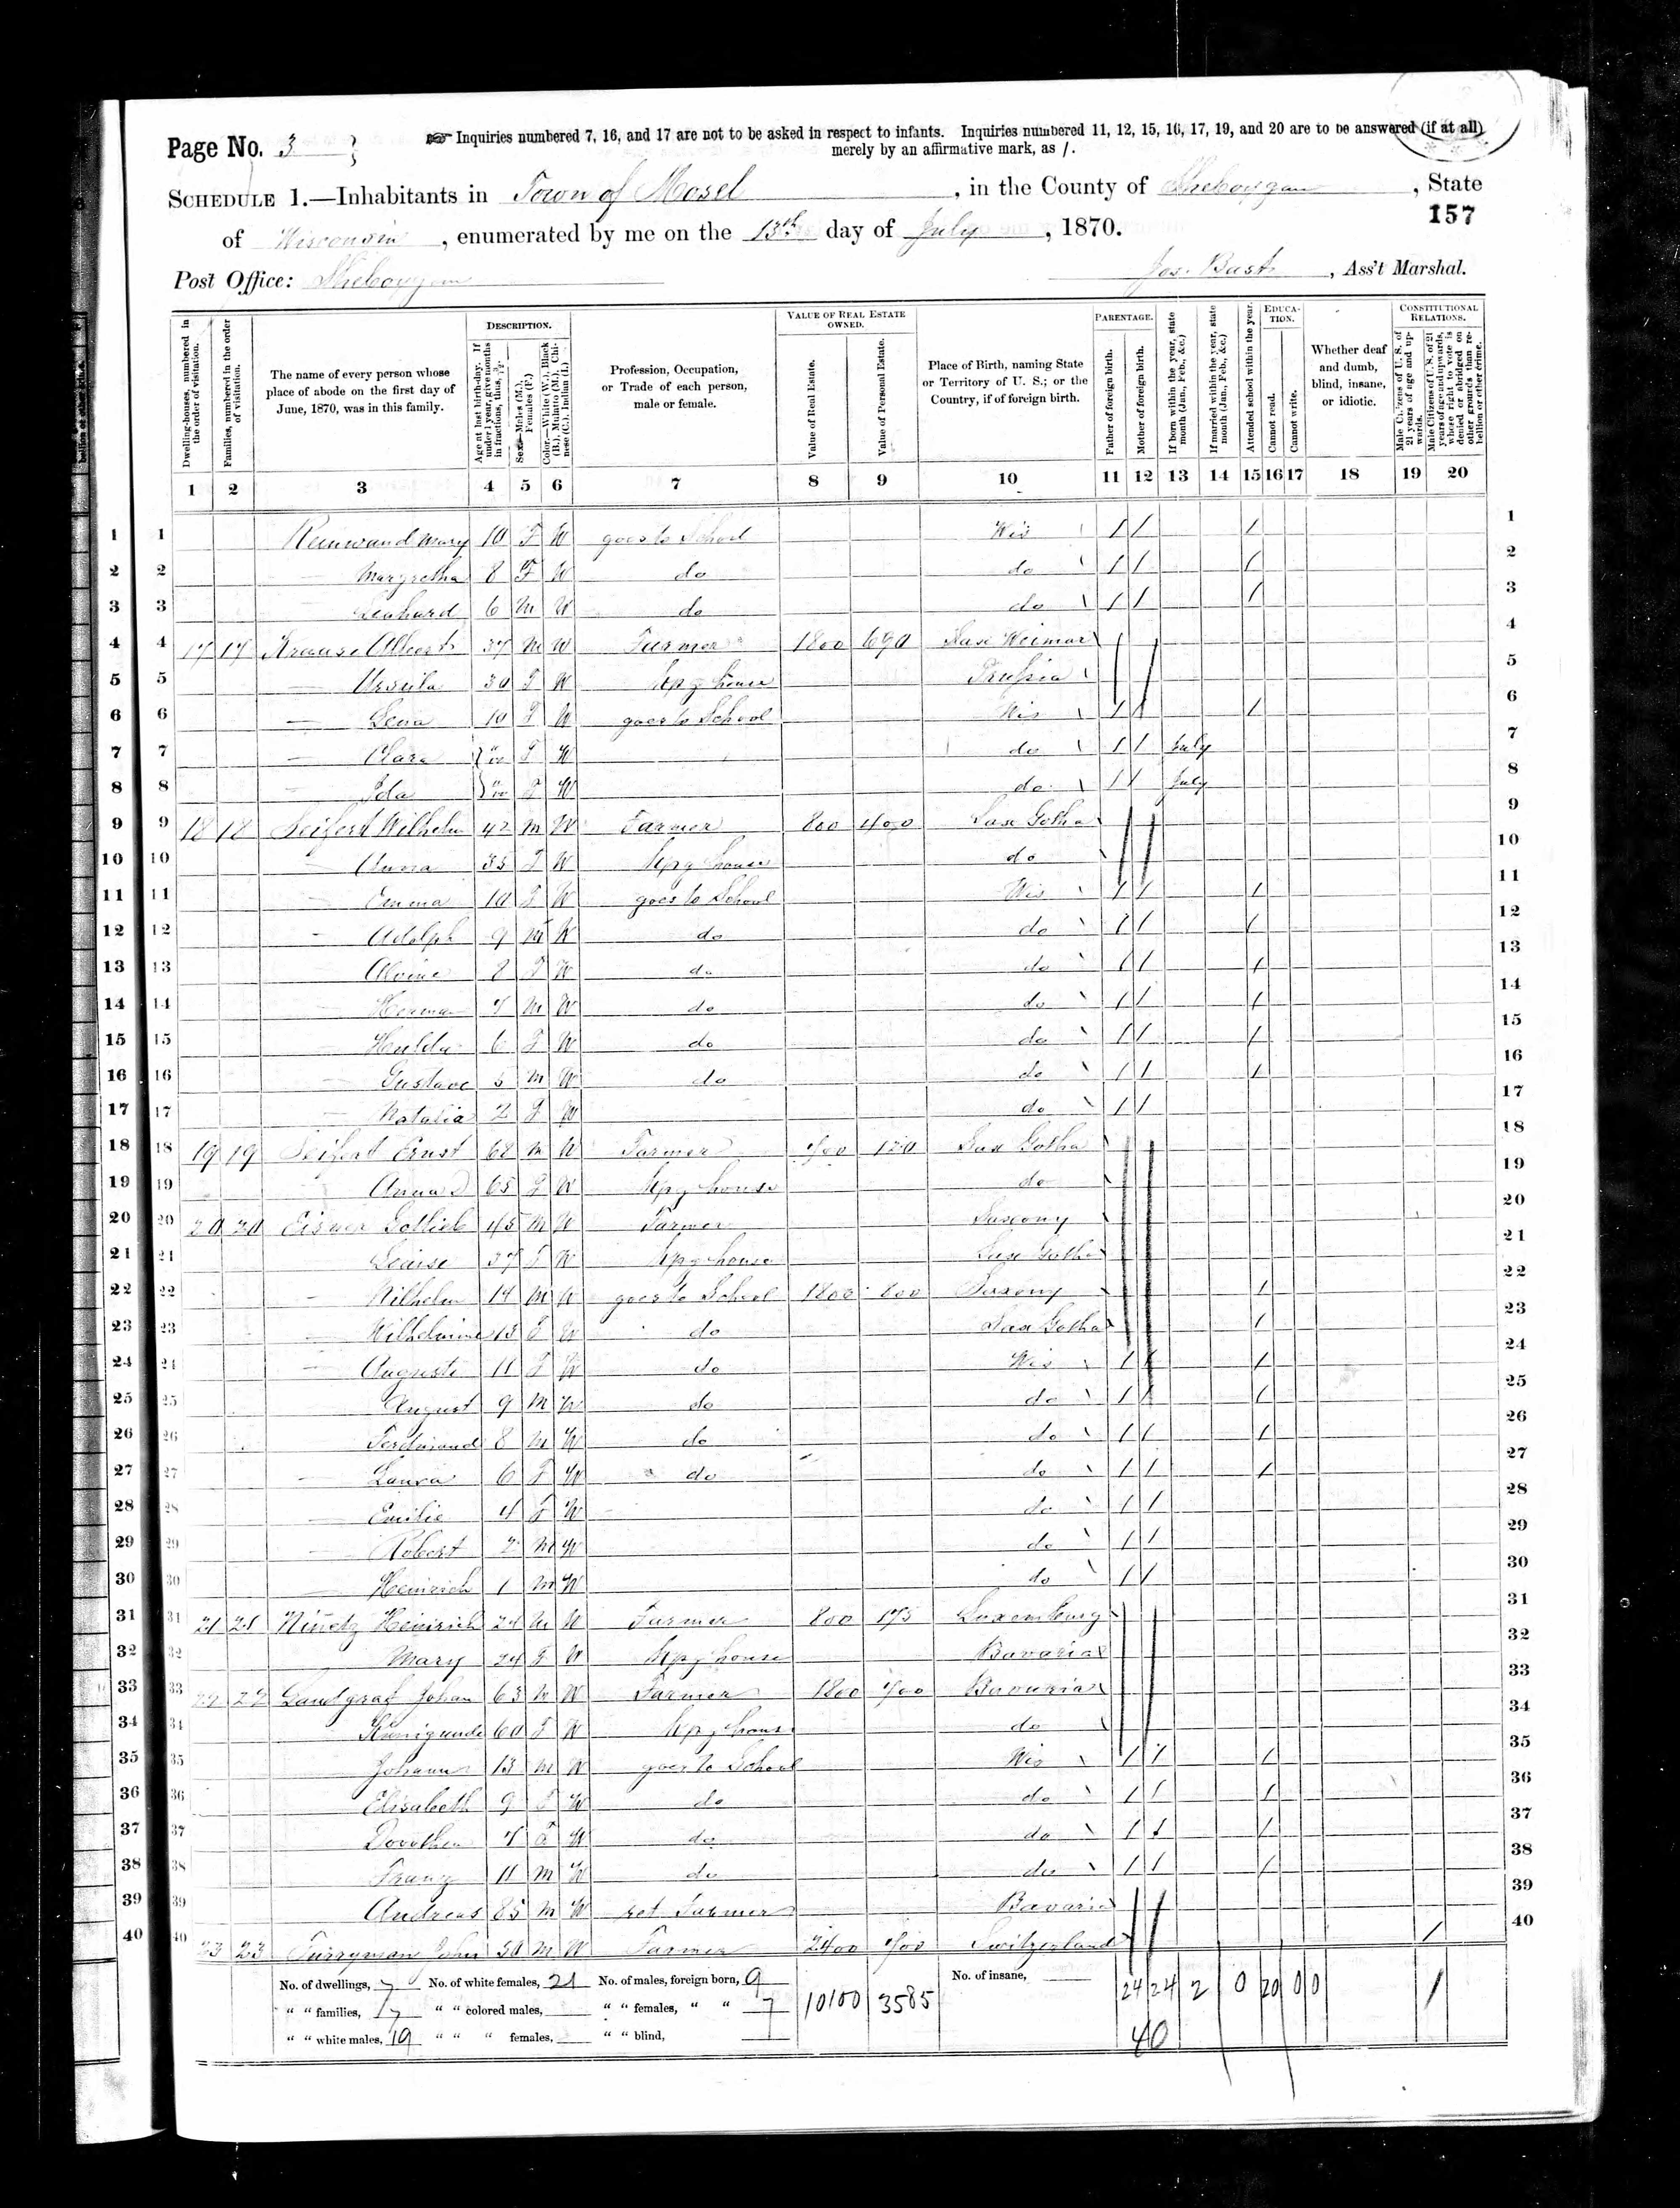 Page No. 3
Inquiries numbered 7, 16, and 17 are not to be asked in respect to infants. Inquiries numbered 11, 12, 15, 16, 17, 19, and 20 are to be answered (if at all)
merely by an affirmative mark, as /.
SCHEDULE 1.—Inhabitants in Town of Mosel, in the County of Sheboygan, State
157
of Wisconsin, enumerated by me on the 13th day of July, 1870.
Post Office: Sheboygan
Jos. Bast, Ass't Marshal.
Dwelling-houses, numbered in the order of visitation.
Families, numbered in the order of visitation.
The name of every person whose place of abode on the first day of June, 1870, was in this family.
DESCRIPTION.
Age at last birth-day. If under 1 year, give months in fractions, thus, 3/12.
Sex.—Males (M.), Females (F.)
Color.—White (W.), Black (B.), Mulatto (M.), Chinese (C.), Indian (I.)
Profession, Occupation, or Trade of each person, male or female.
VALUE OF REAL ESTATE OWNED.
Value of Real Estate.
Value of Personal Estate.
Place of Birth, naming State or Territory of U. S.; or the Country, if of foreign birth.
PARENTAGE.
Father of foreign birth.
Mother of foreign birth.
If born within the year, state month (Jan., Feb., &c.)
If married within the year, state month (Jan., Feb., &c.)
Attended school within the year.
EDUCATION.
Cannot read.
Cannot write.
Whether deaf and dumb, blind, insane, or idiotic.
CONSTITUTIONAL RELATIONS.
Male Citizens of U. S. of 21 years of age and upwards.
Male Citizens of U. S. of 21 years of age and upwards, whose right to vote is denied or abridged on other grounds than rebellion or other crime.
1 2 3 4 5 6 7 8 9 10 11 12 13 14 15 16 17 18 19 20
1 1 Reinwand Mary 10 F W goes to School Wis / / / 1
2 2 Margretha 8 F W do do / / / 2
3 3 Leahard 6 M W do do / / / 3
4 4 17 17 Krause Albert 37 M W Farmer 1800 690 Sax Weimar / / 4
5 5 Ursula 30 F W kpg house Prussia / / 5
6 6 Lena 10 F W goes to School Wis / / / 6
7 7 Clara F W do / / July 7
8 8 Ida F W do / / July 8
9 9 18 18 Seifert Wilhelm 42 M W Farmer 800 400 Sax Gotha / / 9
10 10 Anna 33 F W kpg house do / / 10
11 11 Emma 10 F W goes to School Wis / / / 11
12 12 Adolph 9 M W do do / / / 12
13 13 Alvine 8 F W do do / / / 13
14 14 Herman 7 M W do do / / / 14
15 15 Hulda 6 F W do do / / / 15
16 16 Gustave 5 M W do do / / / 16
17 17 Natalia 2 F W do / / 17
18 18 19 19 Seifert Ernst 68 M W Farmer 700 120 Sax Gotha / / 18
19 19 Anna 65 F W kpg house do / / 19
20 20 20 20 Eisner Gotlieb 45 M W Farmer Saxony / / 20
21 21 Louise 37 F W kpg house Sax Gotha / / 21
22 22 Wilhelm 14 M W goes to School 1800 800 Saxony / / / 22
23 23 Wilhelmine 13 F W do Sax Gotha / / / 23
24 24 Auguste 11 F W do Wis / / / 24
25 25 August 9 M W do do / / / 25
26 26 Ferdinand 8 M W do do / / / 26
27 27 Laura 6 F W do do / / / 27
28 28 Emilie 4 F W do / / 28
29 29 Robert 2 M W do / / 29
30 30 Heinrich 1 M W do / / 30
31 31 21 21 Heinrich 24 M W Farmer 800 175 Luxemburg / / 31
32 32 Mary 24 F W kpg house Bavaria / / 32
33 33 22 22 Landgraf Johan 63 M W Farmer 1800 700 Bavaria / / 33
34 34 Kunigunde 60 F W kpg hous do / / 34
35 35 Johann 13 M W goes to School Wis / / / 35
36 36 Elisabeth 9 F W do do / / / 36
37 37 Dorothea 7 F W do do / / / 37
38 38 Franz 11 M W do do / / / 38
39 39 Andreas 85 M W ret Farmer Bavaria / / 39
40 40 23 23 John 50 M W Farmer 2400 700 Switzerland / / / 40
No. of dwellings, 7 No. of white females, 21 No. of males, foreign born, 9 10100 3585 No. of insane, 24 24 2 0 20 0 0 /
" " families, 7 " " colored males, " " females, " " 7
" " white males, 19 " " " females, " " blind, 40